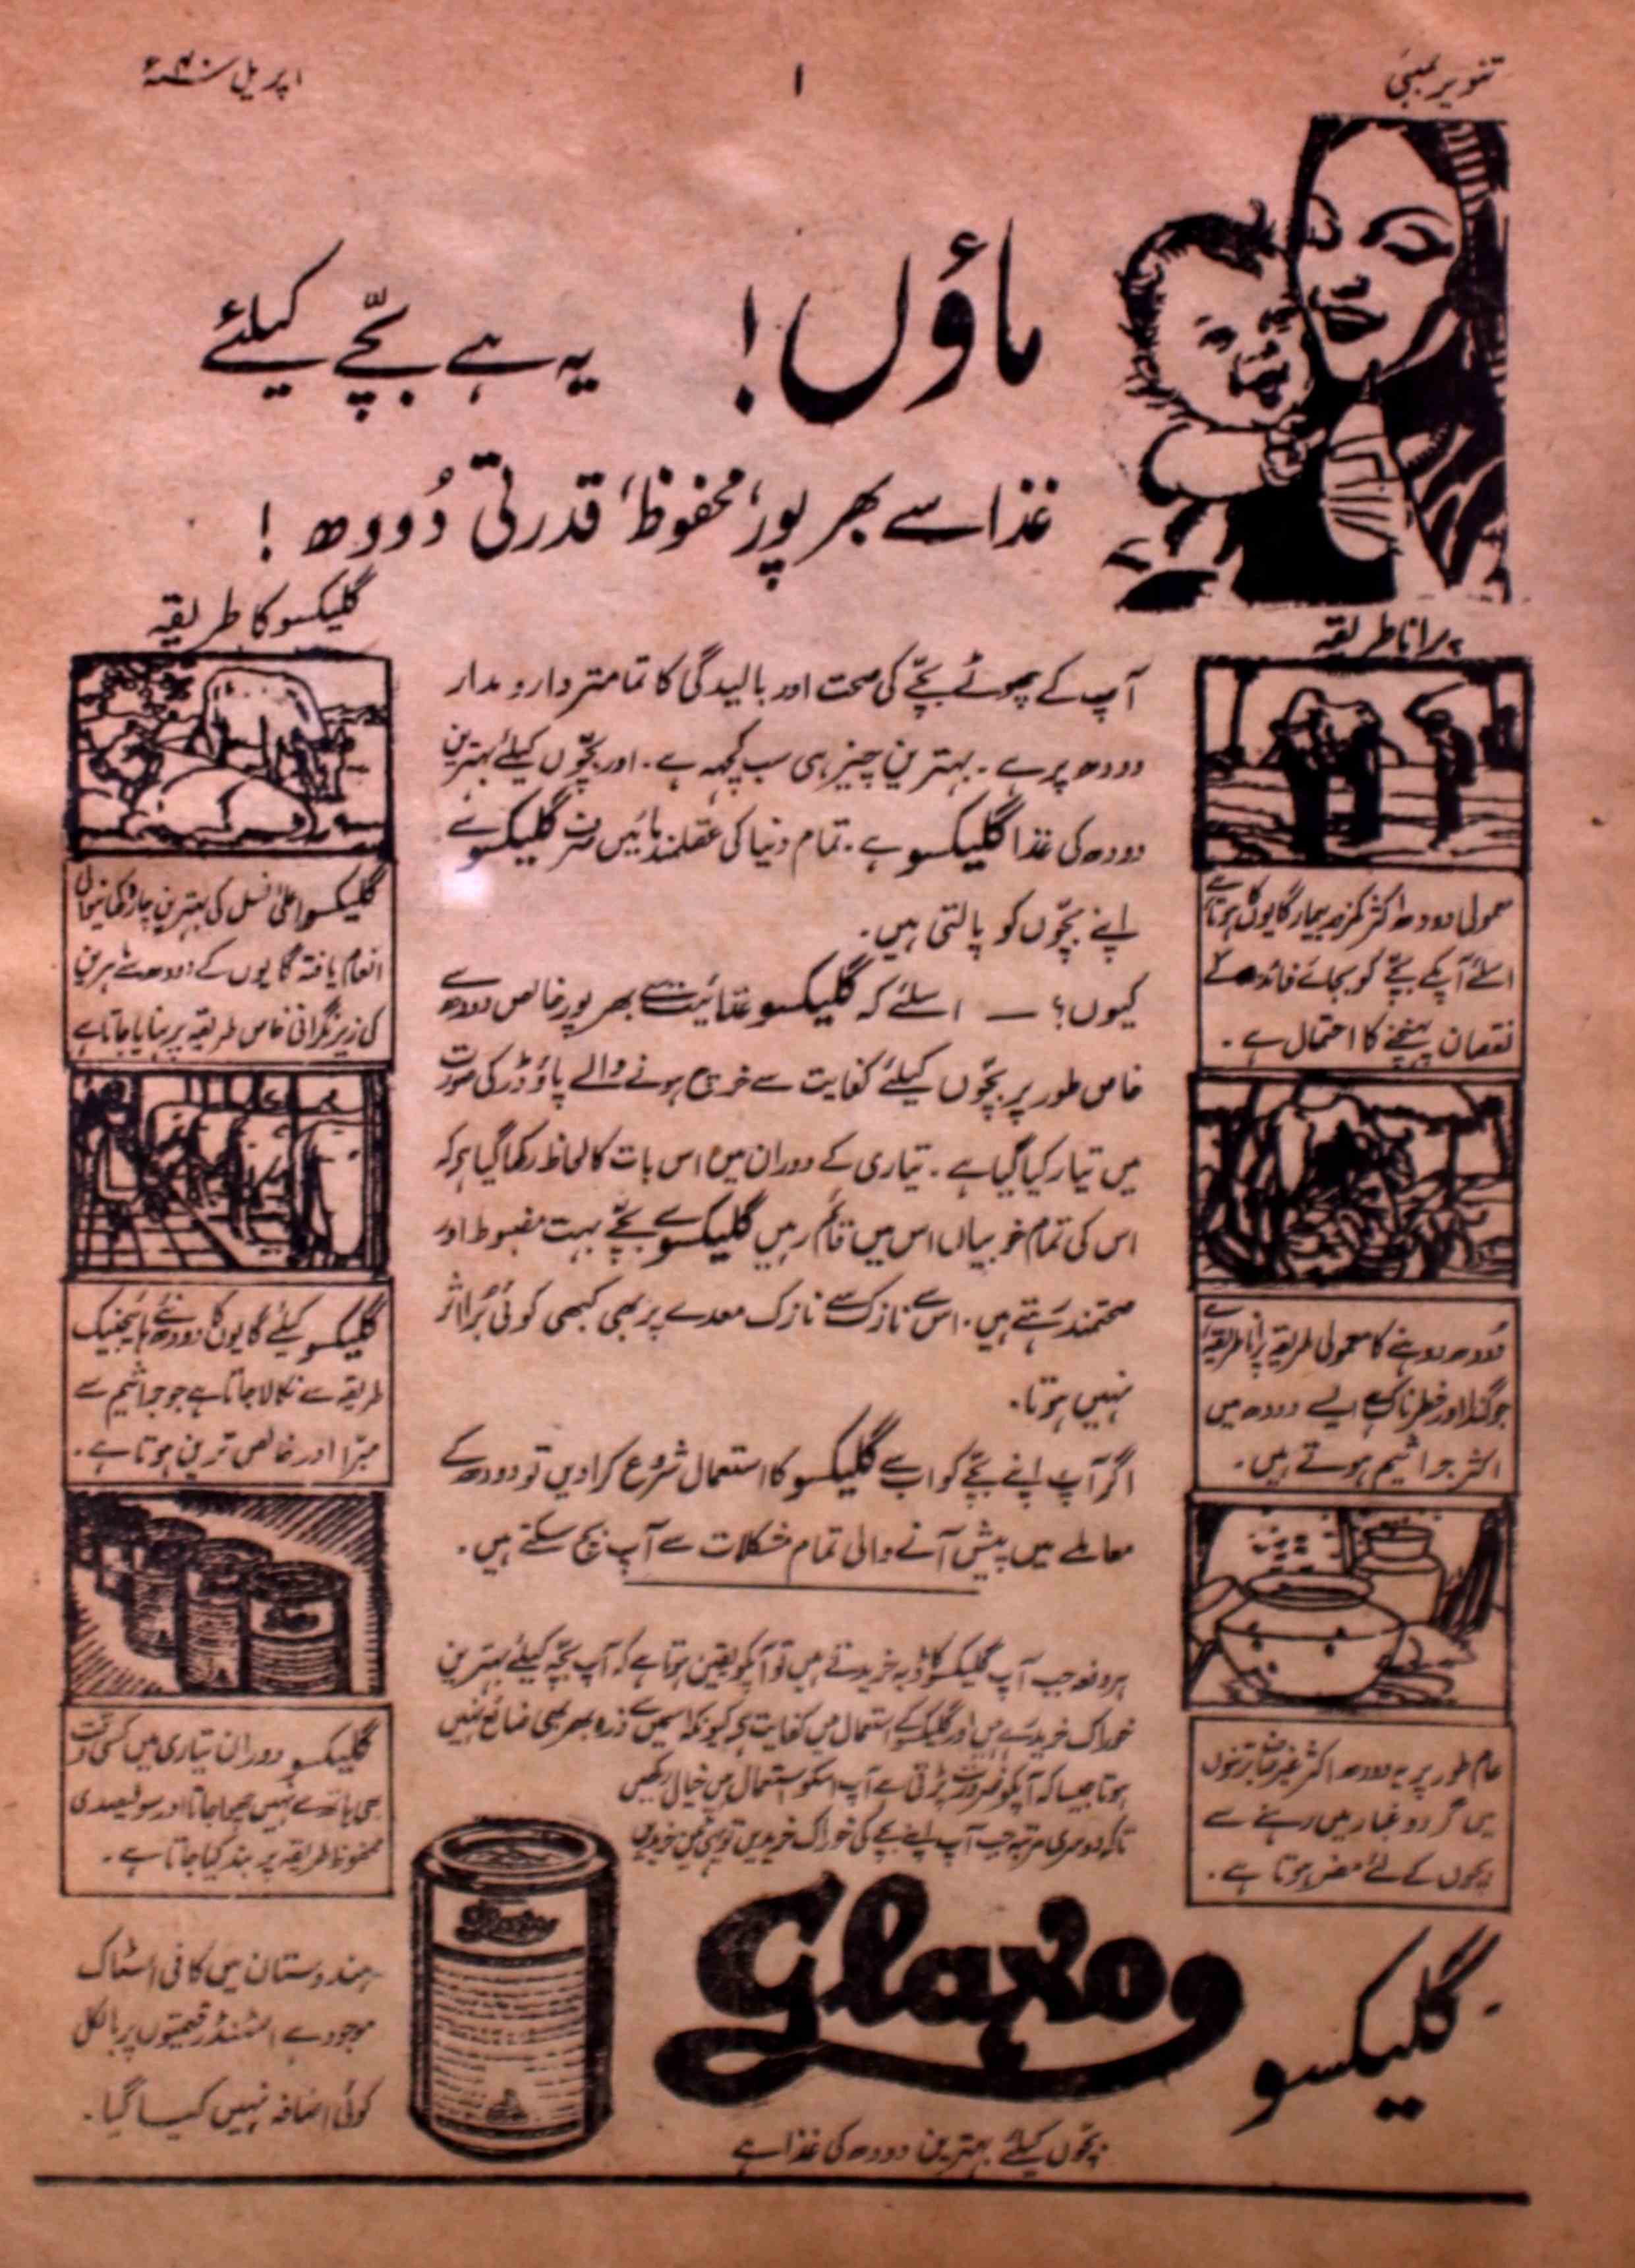 تنویر بمبئی
۱
اپریل سنہ ۴۰ء
ماؤں! یہ ہے بچّے کیلئے
غذا سے بھر پور، محفوظ، قدرتی دُودھ!
پرانا طریقہ
معمولی دودھ اکثر کمزور بیمار گایوں کا ہوتا ہے
اسلئے آپکے بچّے کو بجائے فائدہ کے
نقصان پہنچنے کا احتمال ہے۔
دُودھ دوہنے کا معمولی طریقہ پُرانا طریقہ ہے
جو گندا اور خطرناک ہے ایسے دودھ میں
اکثر جراثیم ہوتے ہیں۔
عام طور پر یہ دودھ اکثر غیر صاف برتنوں
میں گرد و غبار میں رہنے سے
بچوں کے لئے مضر ہوتا ہے۔
آپ کے چھوٹے بچّے کی صحت اور بالیدگی کا تمامتر دارومدار
دودھ پر ہے۔ بہترین چیز ہی سب کچھ ہے۔ اور بچّوں کیلئے بہترین
دودھ کی غذا گلیکسو ہے۔ تمام دنیا کی عقلمند مائیں صرف گلیکسو سے
اپنے بچّوں کو پالتی ہیں۔
کیوں؟ — اسلئے کہ گلیکسو غذائیت سے بھر پور خالص دودھ سے
خاص طور پر بچّوں کیلئے کفایت سے خرچ ہونے والے پاؤڈر کی صورت
میں تیار کیا گیا ہے۔ تیاری کے دوران میں اس بات کا لحاظ رکھا گیا ہے کہ
اس کی تمام خوبیاں اس میں قائم رہیں گلیکسو سے بچّے بہت مضبوط اور
صحتمند رہتے ہیں۔ اس سے نازک سے نازک معدے پر بھی کبھی کوئی بُرا اثر
نہیں ہوتا۔
اگر آپ اپنے بچّے کو اب سے گلیکسو کا استعمال شروع کرا دیں تو دودھ کے
معاملے میں پیش آنے والی تمام مشکلات سے آپ بچ سکتے ہیں۔
ہر دفعہ جب آپ گلیکسو کا ڈبہ خریدتے ہیں تو آپکو یقین ہوتا ہے کہ آپ بچّہ کیلئے بہترین
خوراک خرید رہے ہیں اور گلیکسو کے استعمال میں کفایت ہے کیونکہ اسمیں سے ذرہ بھر بھی ضائع نہیں
ہوتا جیسا کہ آپکو ضرورت پڑتی ہے آپ اسکو استعمال میں خیال رکھیں
تاکہ دوسری مرتبہ جب آپ اپنے بچے کی خوراک خریدیں تو یہی خریدیں
گلیکسو کا طریقہ
گلیکسو اعلیٰ نسل کی بہترین چارہ کھانیوالی
انعام یافتہ گایوں کے دودھ سے ماہرین
کی زیر نگرانی خاص طریقہ پر بنایا جاتا ہے
گلیکسو کیلئے گایوں کا دودھ نئے ہائیجنیک
طریقے سے نکالا جاتا ہے جو جراثیم سے
مبّرا اور خالص ترین ہوتا ہے۔
گلیکسو دوران تیاری میں کسی وقت
بھی ہاتھ سے نہیں چھوا جاتا اور سو فیصدی
محفوظ طریقہ پر بند کیا جاتا ہے۔
ہندوستان میں کافی اسٹاک
موجود ہے اسٹنڈرڈ قیمتوں پر بالکل
کوئی اضافہ نہیں کیا گیا۔
Glaxo
Glaxo
گلیکسو
بچّوں کیلئے بہترین دودھ کی غذا ہے